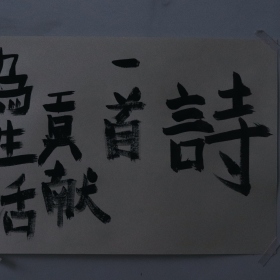 詩
一首
貢献
為生活